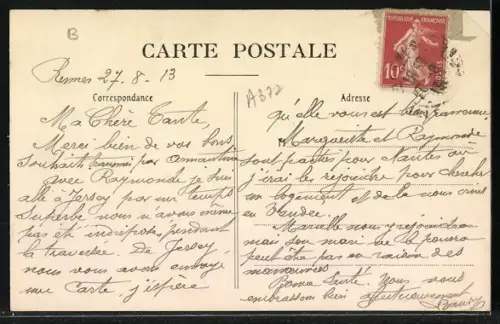 B
CARTE POSTALE
REPUBLIQUE FRANÇAISE
10c
POSTES
Rennes 27-8-13
A372
Correspondance
Adresse
Ma Chère Tante,
Merci bien de vos bons
souhaits transmis par
avec Raymonde je suis
allé à Jersey par un temps
superbe nous n'avons même
pas été indisposés pendant
la traversée. De Jersey,
nous vous avons envoyé
une Carte, j'espère
qu'elle vous est bien parvenue
Marguerite et Raymonde
sont parties pour Nantes où
j'irai les rejoindre pour chercher
un logement et de là nous irons
en Vendée.
Marcelle nous y rejoindra
mais son mari ne le pourra
peut être pas en raison des
manœuvres
Bonne Santé. Nous vous
embrassons bien affectueusement